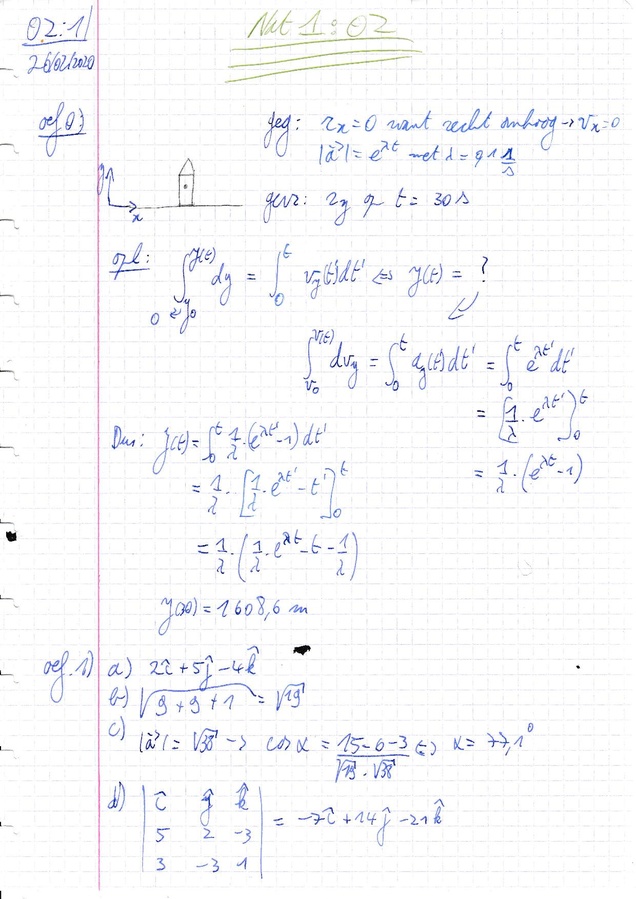 02:1)
Nat 1: 02
26/02/2020
oef 0)
geg: r_x=0 want recht omhoog → v_x=0
|a⃗|= e^{λt} met λ = 0,1 1/s
y
x
gevr: r_y op t = 30 s
opl: ∫_{0 ⇐ y_0}^{y(t)} dy = ∫_0^t v_y(t')dt' ⇔ y(t) = ?
∫_{v_0}^{v(t)} dv_y = ∫_0^t a_y(t')dt' = ∫_0^t e^{λt'} dt'
= [1/λ · e^{λt'}]_0^t
= 1/λ · (e^{λt} - 1)
Dus: y(t) = ∫_0^t 1/λ · (e^{λt'} - 1) dt'
= 1/λ · [1/λ · e^{λt'} - t']_0^t
= 1/λ · (1/λ · e^{λt} - t - 1/λ)
y(30) = 1608,6 m
oef. 1) a) 2î + 5ĵ - 4k̂
b) √(9 + 9 + 1) = √19
c) |a⃗| = √38 → cos α = (15-6-3)/(√19 · √38) ⇔ α = 77,1°
d) | î ĵ k̂ |
| 5 2 -3 | = -7î + 14ĵ - 21k̂
| 3 -3 1 |